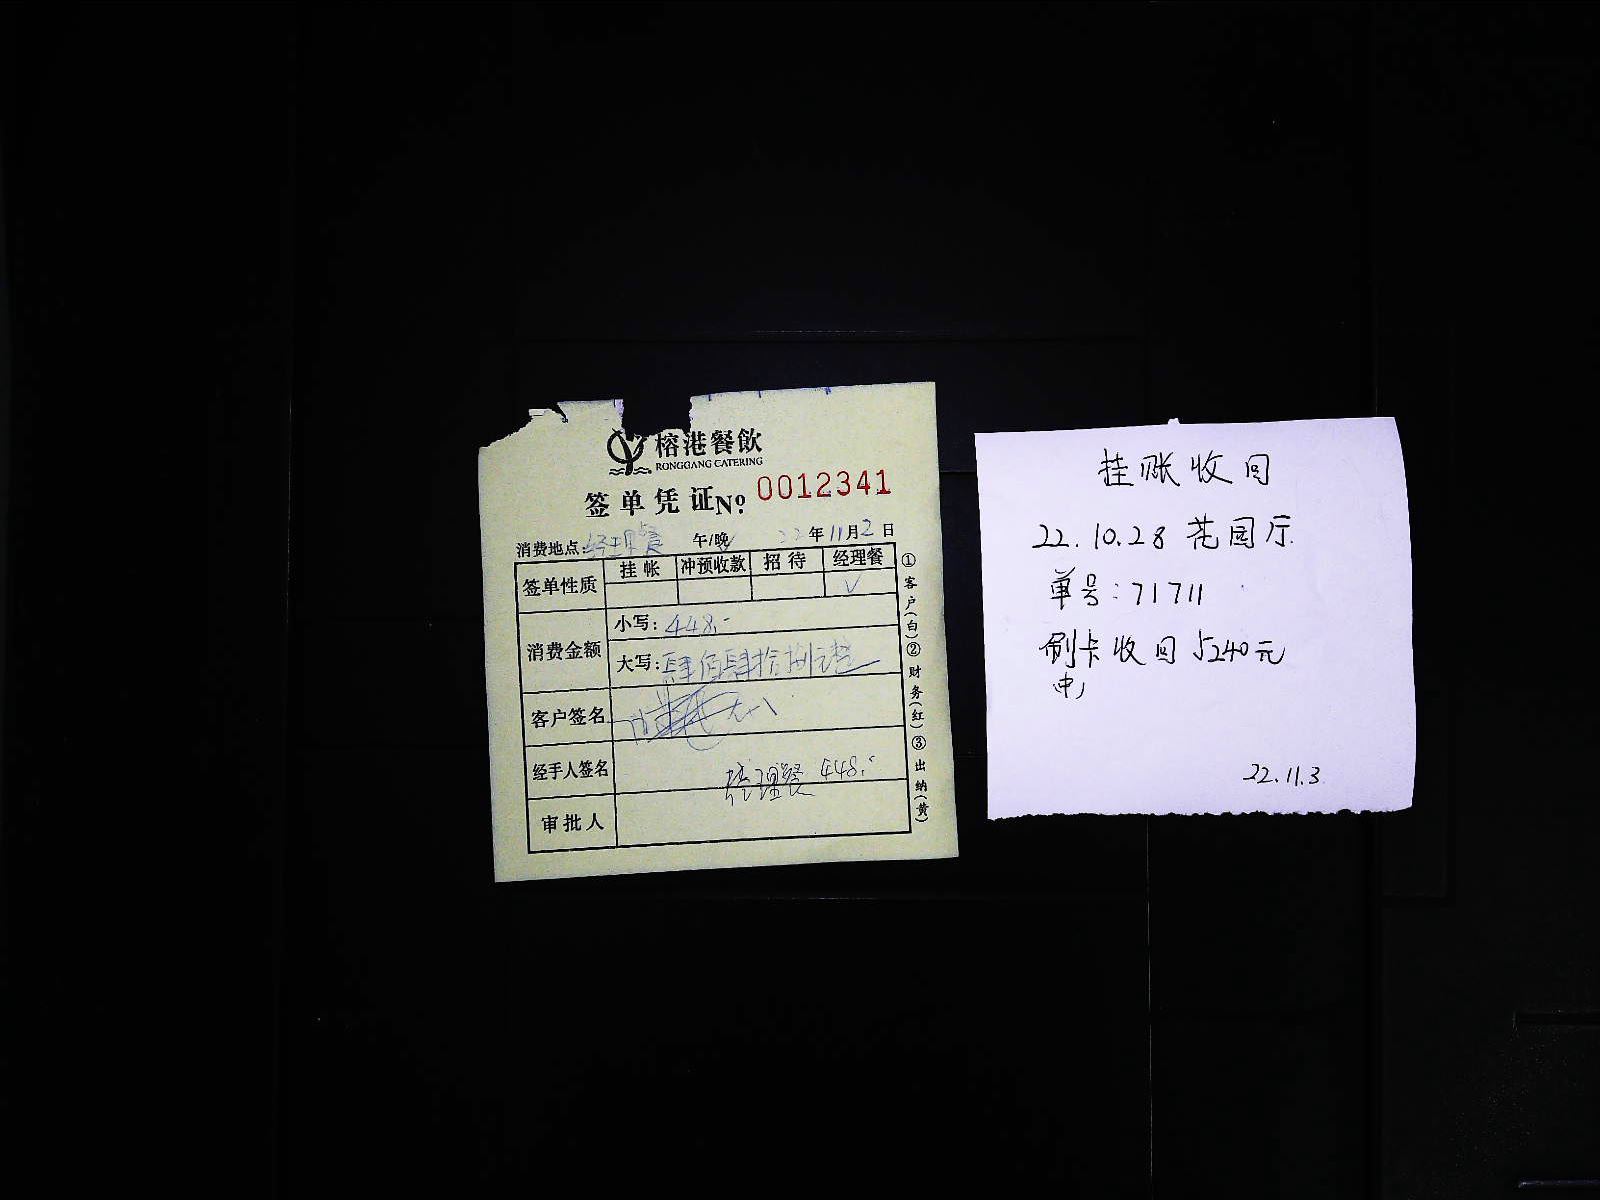 榕港餐飲
RONGGANG CATERING
签单凭证No. 0012341
消费地点: 经理餐 午/晚 22年11月2日
签单性质 挂帐 冲预收款 招待 经理餐
✓
消费金额 小写: 448.-
大写: 肆佰肆拾捌元整
客户签名
经手人签名 经理餐 448.-
审批人
①客户(白)②财务(红)③出纳(黄)
挂账收回
22.10.28 花园厅.
单号: 71711
刷卡收回 5240元
22.11.3